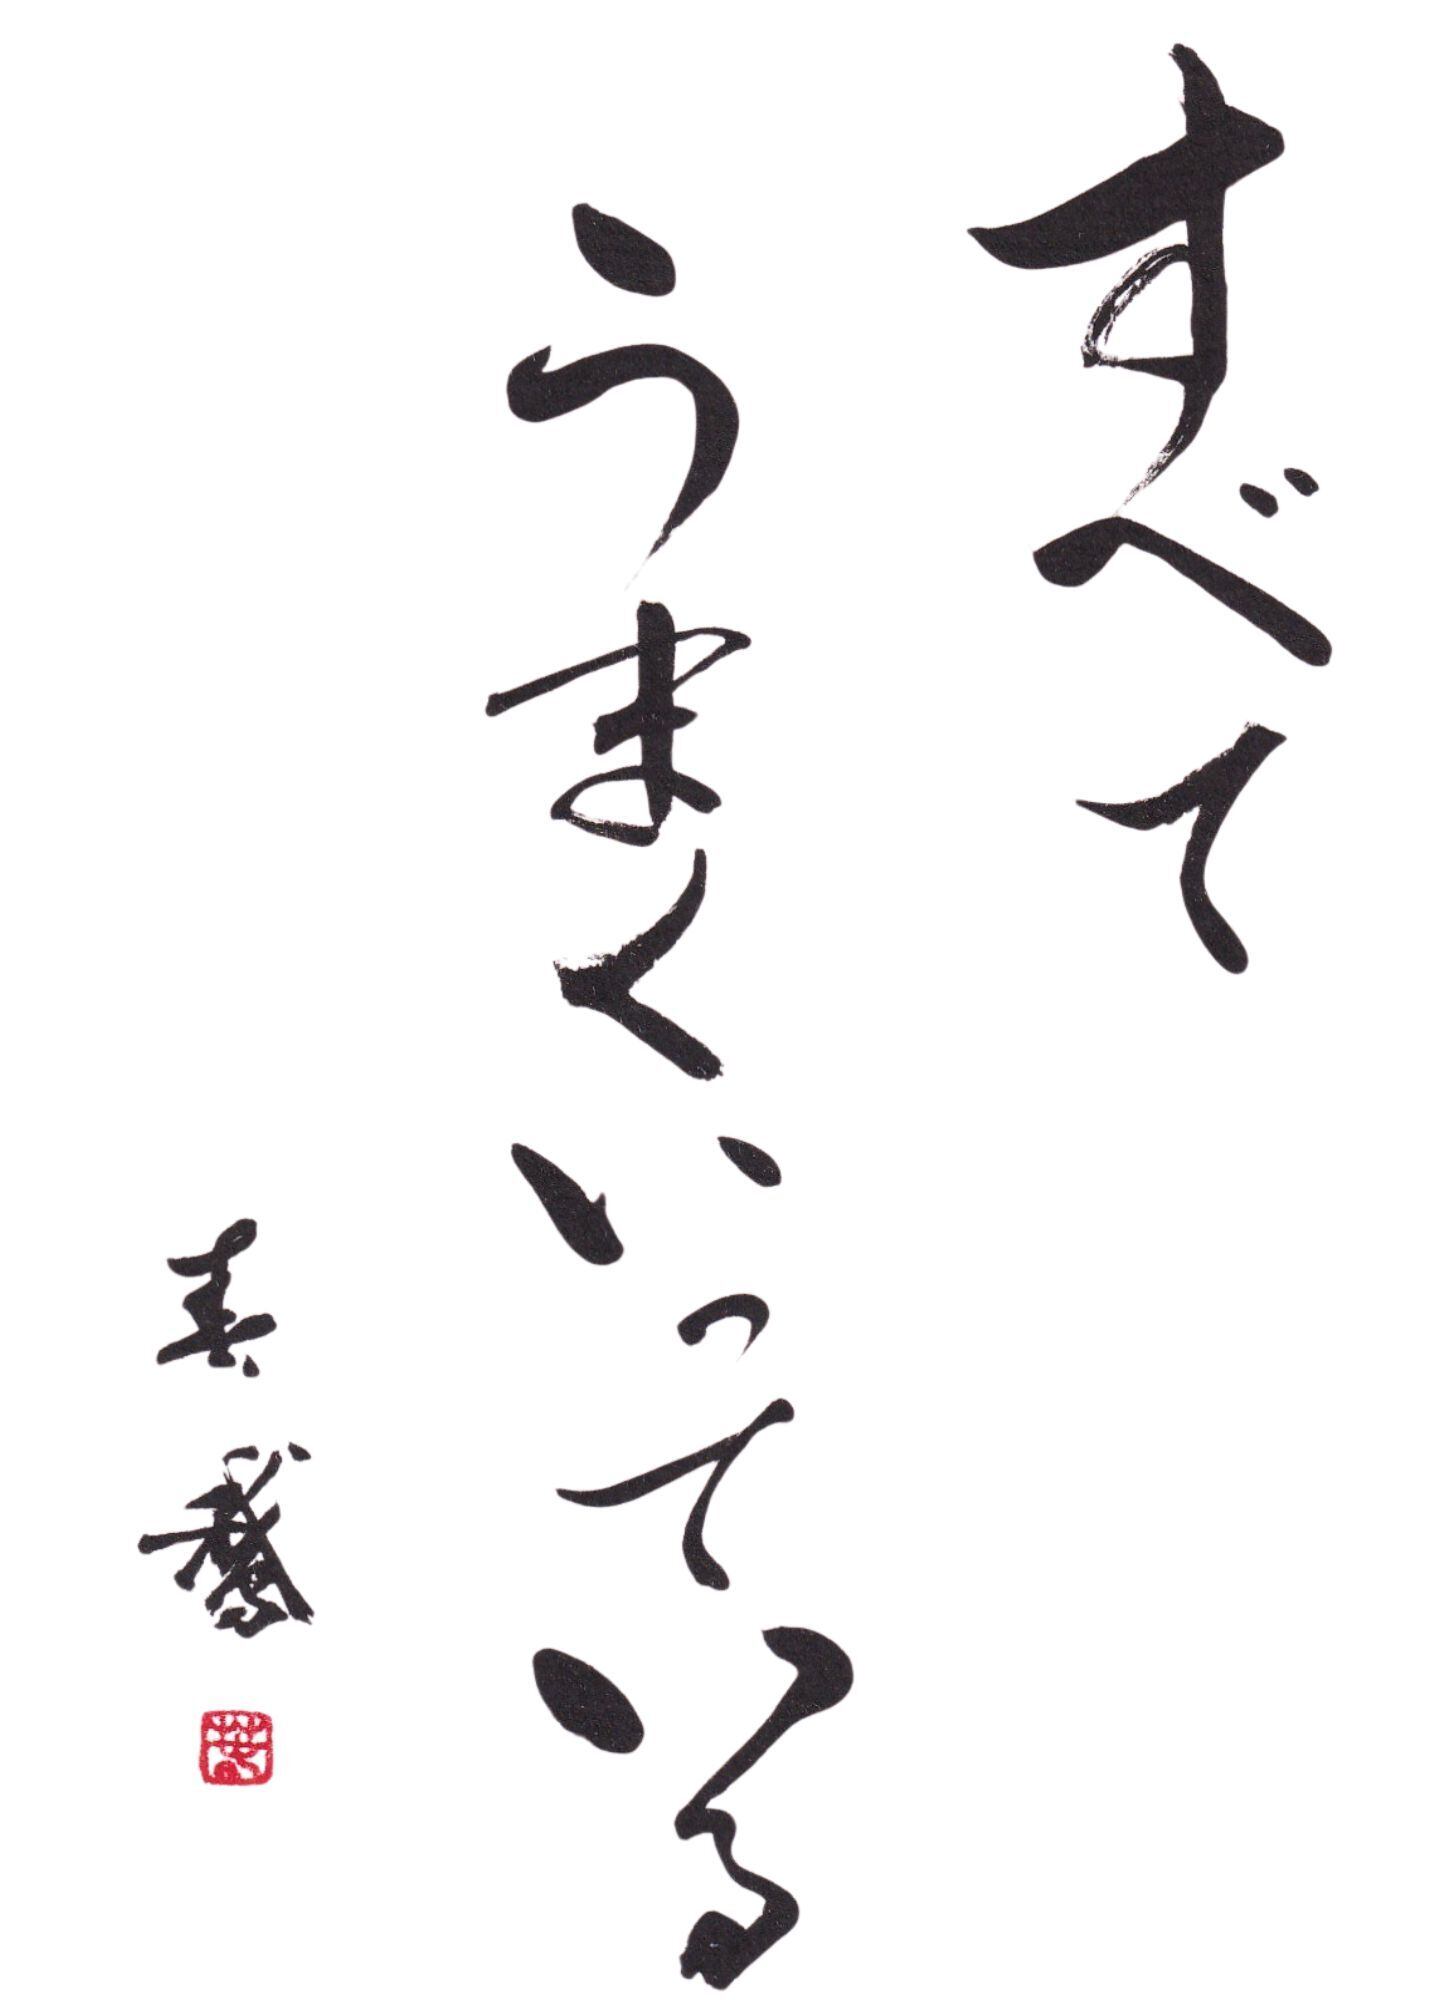 すべて
うまくいっている